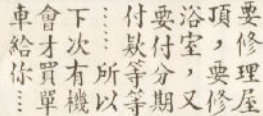 要修理屋
頂，要修
浴室，又
要付分期
付款等等
……所以
下次有機
會才買單
車給你…